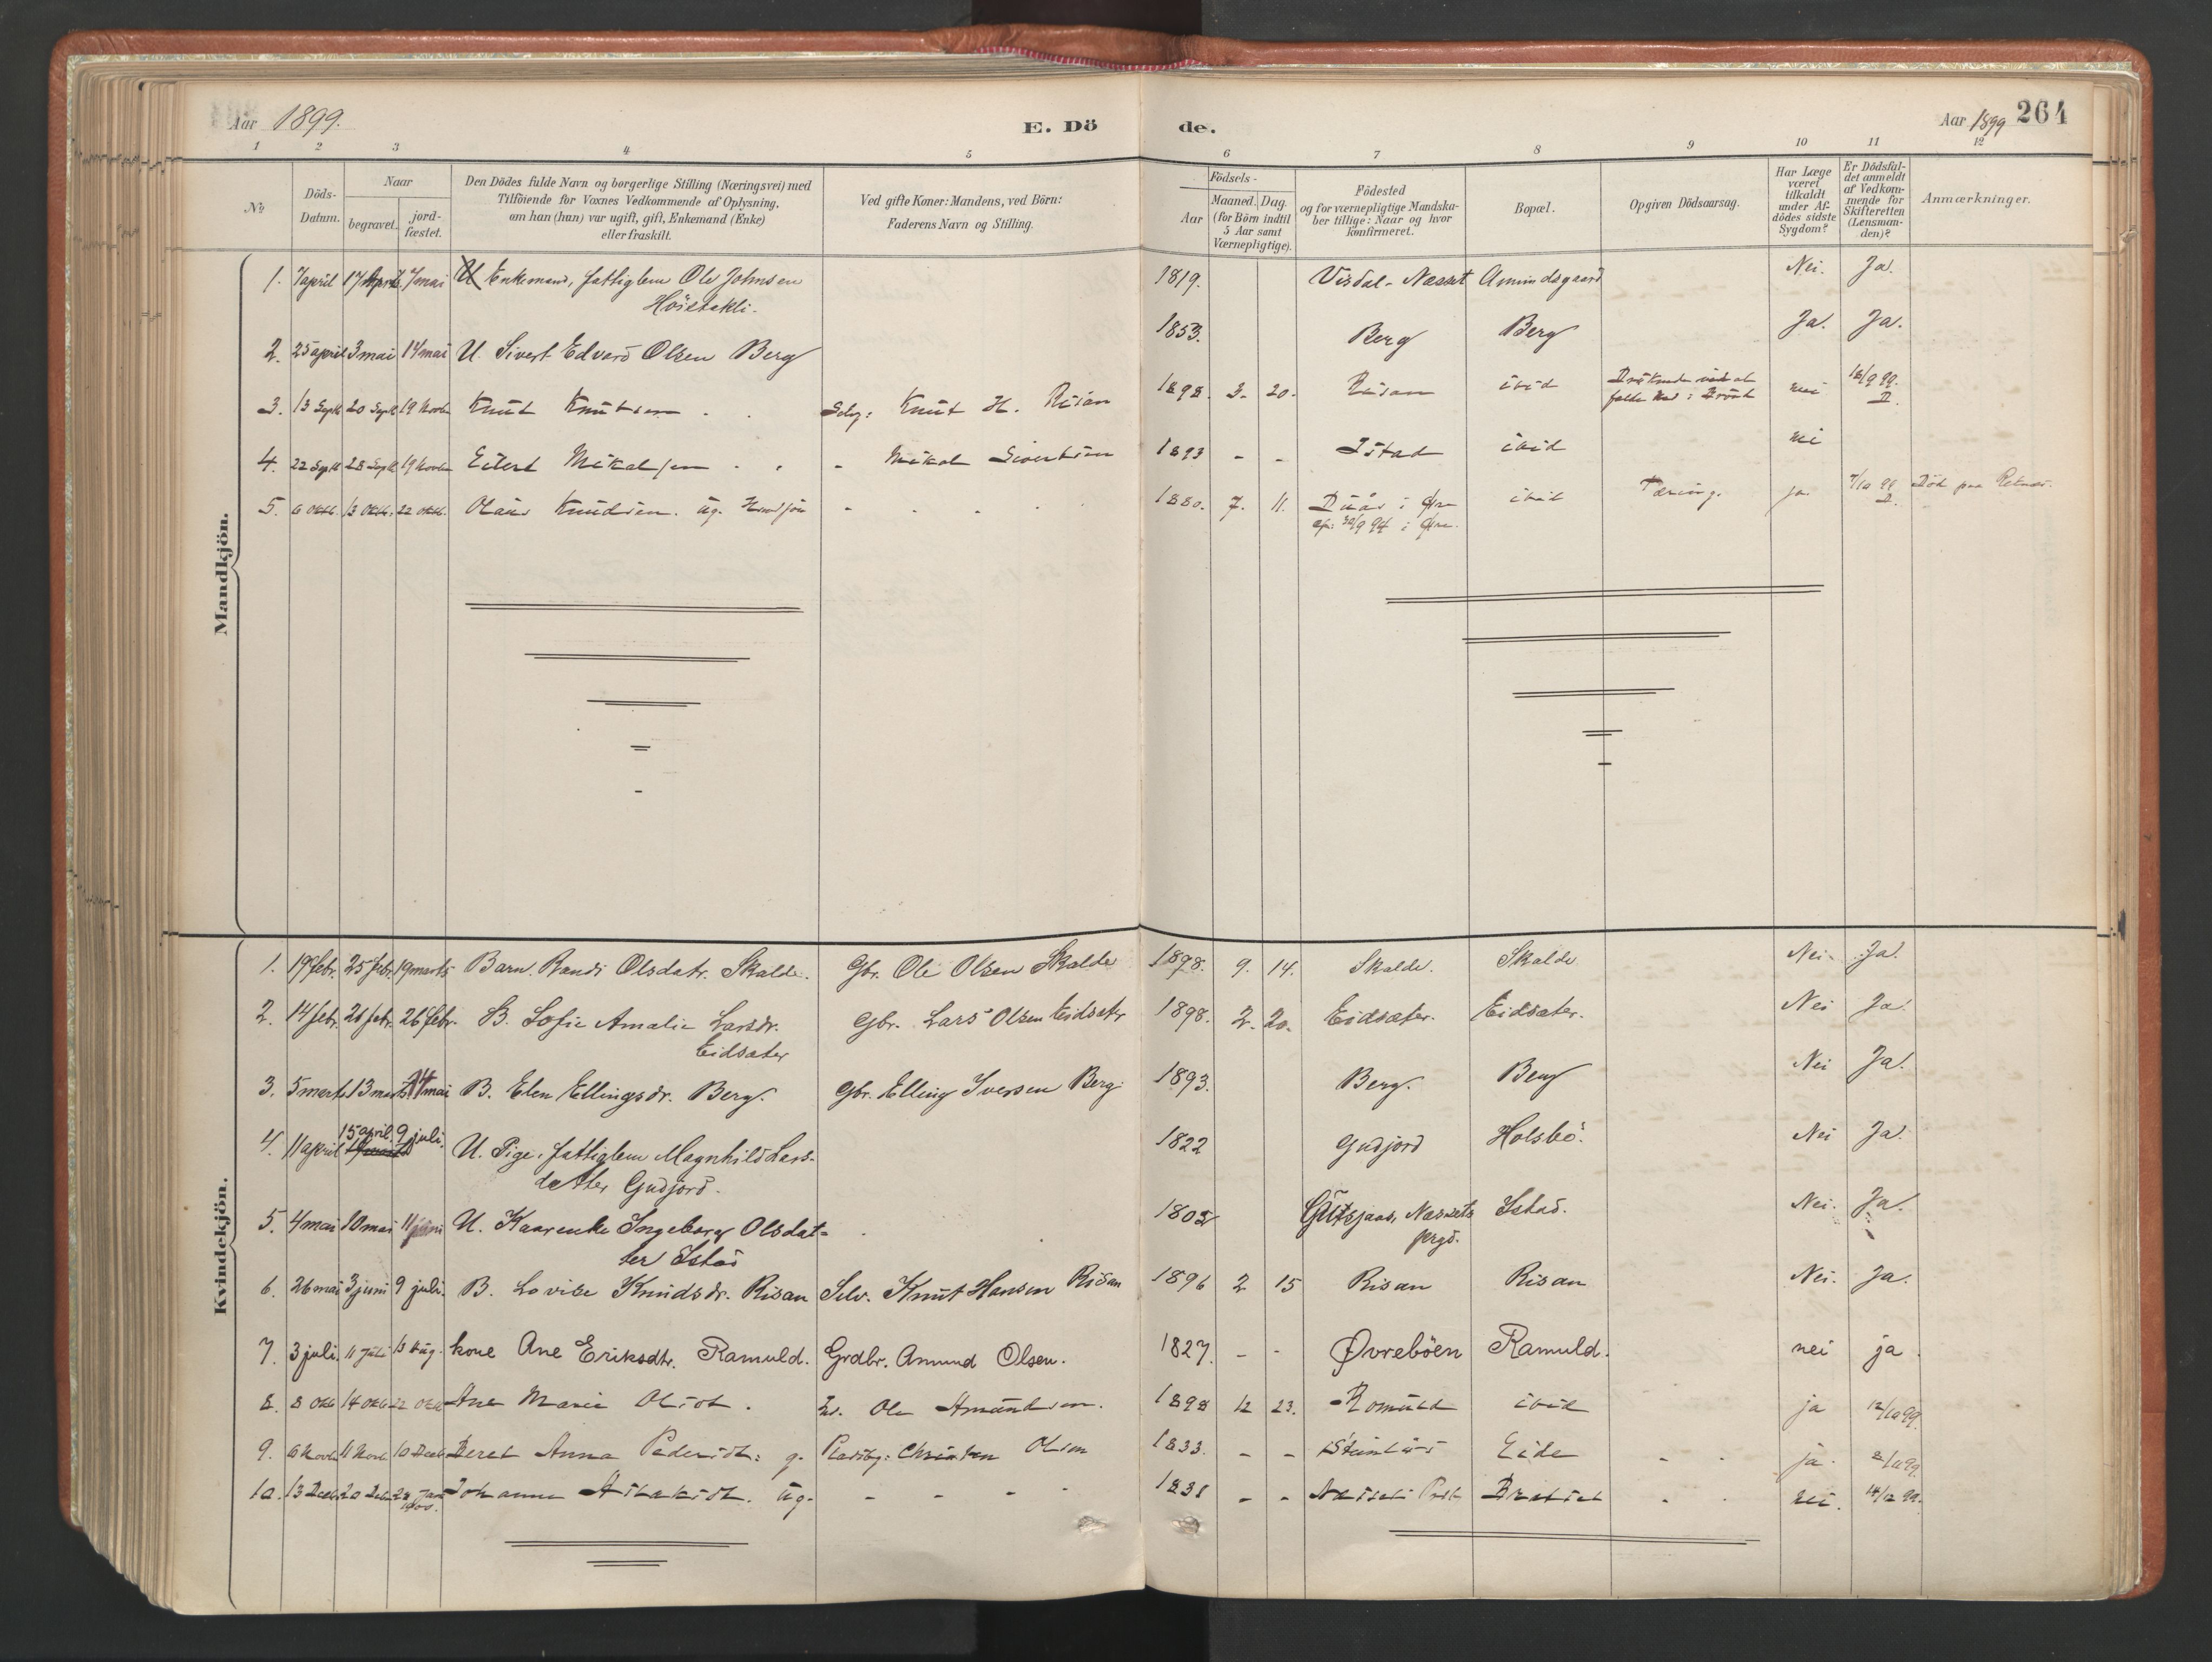 Aar 1899.
E. Dö
de.
Aar 1899
264
1 2 3 4 5 6 7 8 9 10 11 12
No
Döds-
Datum.
Naar
begravet.
jord-
fæstet.
Den Dödes fulde Navn og borgerlige Stilling (Næringsvei) med
Tilföiende for Voxnes Vedkommende af Oplysning,
om han (hun) var ugift, gift, Enkemand (Enke)
eller fraskilt.
Ved gifte Koner: Mandens, ved Börn:
Faderens Navn og Stilling.
Födsels-
Aar
Maaned. Dag.
(for Börn indtil
5 Aar samt
Værnepligtige).
Födested
og for værnepligtige Mandska-
ber tillige: Naar og hvor
konfirmeret.
Bopæl.
Opgiven Dödsaarsag.
Har Læge
været
tilkaldt
under Af-
dödes sidste
Sygdom?
Er Dödsfal-
det anmeldt
af Vedkom-
mende for
Skifteretten
(Lensman-
den)?
Anmærkninger.
Mandkjön.
1. 7 april 17 April 7 mai U Enkemand, fattiglem Ole Johnsen 1819. Visdal - Nesset Amundsgaard Nei. Ja.
Höistakli.
2. 25 april 3 mai 14 mai U. Sivert Edvard Olsen Berg 1853. Berg Berg Ja. Ja.
3. 13 Sept 20 Sept 19 Novbr Knut Knutsen Selvg: Knut H. Risan 1898. 3. 20. Risan ibid Druknede ved at nei 18/9 99.
falde ned i Brönd D.
4. 22 Sept 28 Sept 19 Novbr Eilert Mikalsen - Mikal Sivertsen 1893 - - Istad ibid nei
5. 6 Oktb. 13 Oktb. 22 Oktb. Olaus Knudsen. ug. - 1880. 7. 11. i Öre ibid Tæring. ja. 7/10 99 Död paa Reknæs.
30/9 94 i Öre. D.
Kvindekjön.
1. 19 febr. 25 febr. 19 marts Barn. Randi Olsdatr. Skalde. Gbr. Ole Olsen Skalde 1898. 9. 14. Skalde. Skalde Nei. Ja.
2. 14 febr. 21 febr. 26 febr. B. Sofie Amalie Larsdr. Gbr. Lars Olsen Eidsæter 1898. 2. 20. Eidsæter. Eidsæter. Nei Ja.
Eidsæter
3. 5 marts 13 marts 14 mai B. Elen Ellingsdr. Berg. Gbr. Elling Iversen Berg 1893. Berg. Berg Nei Ja.
15 april 9 juli.
4. 11 april U. Pige, fattiglem Magnhild Lars- 1822 Gudjord Holsbö. Nei Ja.
datter Gudjord.
5. 4 mai 10 mai 11 juni U. Kaarenke Ingeborg Olsdat= 1805 Nessets Istad. Nei. Ja.
ter Istad prgd.
6. 26 mai 3 juni 9 juli. B. Lovise Knudsdr. Risan Selv. Knut Hansen Risan 1896 2 15 Risan Risan Nei. Ja.
7. 3 juli. 11 Juli 13 Aug. kone Ane Eriksdtr. Ramuld. Grdbr. Amund Olsen. 1827. - - Øvreböen Ramuld. nei ja.
8. 8 Oktb 14 Oktb 22 Oktb Ane Marie Olsdt. Ole Amundsen. 1898 12 23. Romuld ibid ja 12/10 99
9. 6 Novbr 11 Novb 10 Decb Beret Anna Pedersdt: g. Pladsbg: Christen Olsen 1833. - - Eide - ja.
10. 13 Decb. 20 Decb. 28 Jan Johanna ug. - - - - 1831 - - - nei. 14/12 99.
1900.